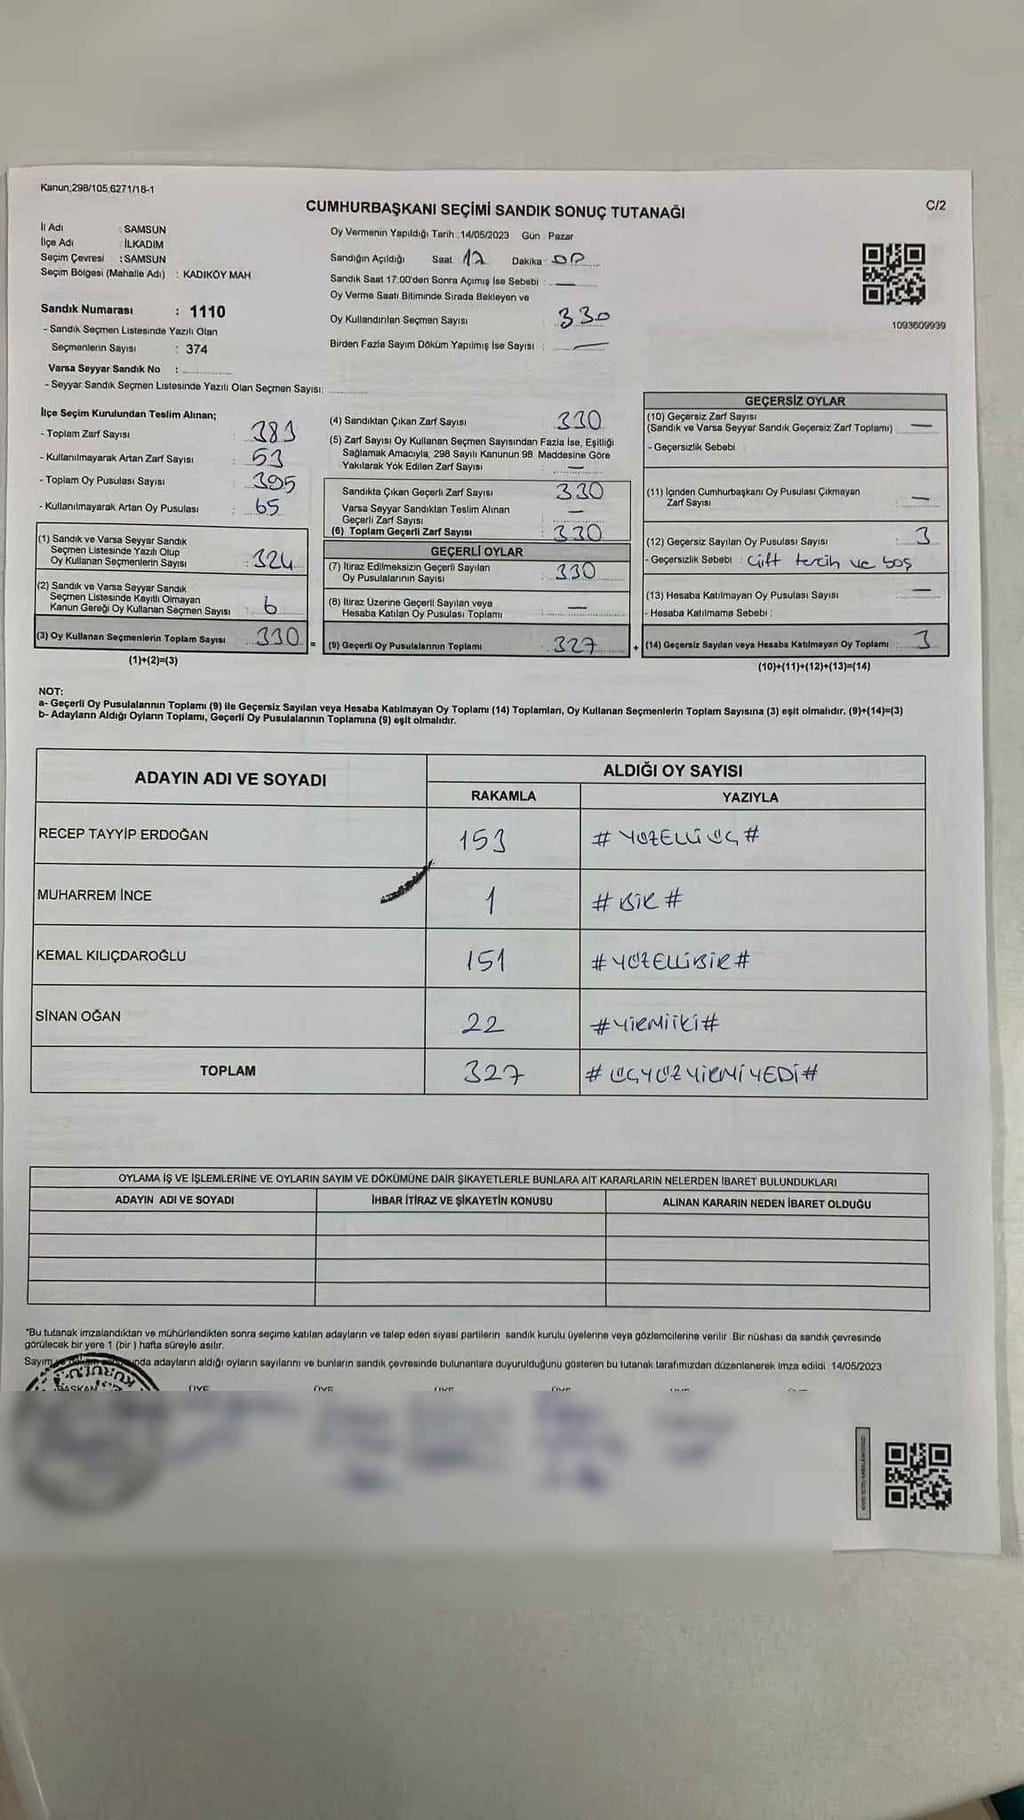 Kanun;298/105,6271/18-1
CUMHURBAŞKANI SEÇİMİ SANDIK SONUÇ TUTANAĞI
C/2
İl Adı : SAMSUN
İlçe Adı : İLKADIM
Seçim Çevresi : SAMSUN
Seçim Bölgesi (Mahalle Adı) : KADIKÖY MAH
Sandık Numarası : 1110
- Sandık Seçmen Listesinde Yazılı Olan
Seçmenlerin Sayısı : 374
Varsa Seyyar Sandık No :
- Seyyar Sandık Seçmen Listesinde Yazılı Olan Seçmen Sayısı:
Oy Vermenin Yapıldığı Tarih :14/05/2023 Gün : Pazar
Sandığın Açıldığı Saat 17 Dakika
Sandık Saat 17:00'den Sonra Açımış İse Sebebi : —
Oy Verme Saati Bitiminde Sırada Bekleyen ve
Oy Kullandırılan Seçmen Sayısı : 330
Birden Fazla Sayım Döküm Yapılmış İse Sayısı : —
1093609939
İlçe Seçim Kurulundan Teslim Alınan;
- Toplam Zarf Sayısı : 383
- Kullanılmayarak Artan Zarf Sayısı : 53
- Toplam Oy Pusulası Sayısı : 395
- Kullanılmayarak Artan Oy Pusulası : 65
(1) Sandık ve Varsa Seyyar Sandık
Seçmen Listesinde Yazılı Olup
Oy Kullanan Seçmenlerin Sayısı : 324
(2) Sandık ve Varsa Seyyar Sandık
Seçmen Listesinde Kayıtlı Olmayan
Kanun Gereği Oy Kullanan Seçmen Sayısı : 6
(3) Oy Kullanan Seçmenlerin Toplam Sayısı : 330 =
(1)+(2)=(3)
(4) Sandıktan Çıkan Zarf Sayısı : 330
(5) Zarf Sayısı Oy Kullanan Seçmen Sayısından Fazla İse, Eşitliği
Sağlamak Amacıyla, 298 Sayılı Kanunun 98 Maddesine Göre
Yakılarak Yok Edilen Zarf Sayısı : —
Sandıkta Çıkan Geçerli Zarf Sayısı : 330
Varsa Seyyar Sandıktan Teslim Alınan
Geçerli Zarf Sayısı : —
(6) Toplam Geçerli Zarf Sayısı : 330
GEÇERLİ OYLAR
(7) İtiraz Edilmeksizin Geçerli Sayılan
Oy Pusulalarının Sayısı : 330
(8) İtiraz Üzerine Geçerli Sayılan veya
Hesaba Katılan Oy Pusulası Toplamı : —
(9) Geçerli Oy Pusulalarının Toplamı : 327 +
GEÇERSİZ OYLAR
(10) Geçersiz Zarf Sayısı
(Sandık ve Varsa Seyyar Sandık Geçersiz Zarf Toplamı) : —
- Geçersizlik Sebebi
(11) İçinden Cumhurbaşkanı Oy Pusulası Çıkmayan
Zarf Sayısı : —
(12) Geçersiz Sayılan Oy Pusulası Sayısı : 3
- Geçersizlik Sebebi : Çift tercih ve boş
(13) Hesaba Katılmayan Oy Pusulası Sayısı : —
- Hesaba Katılmama Sebebi :
(14) Geçersiz Sayılan veya Hesaba Katılmayan Oy Toplamı : 3
(10)+(11)+(12)+(13)=(14)
NOT:
a- Geçerli Oy Pusulalarının Toplamı (9) ile Geçersiz Sayılan veya Hesaba Katılmayan Oy Toplamı (14) Toplamları, Oy Kullanan Seçmenlerin Toplam Sayısına (3) eşit olmalıdır. (9)+(14)=(3)
b- Adayların Aldığı Oyların Toplamı, Geçerli Oy Pusulalarının Toplamına (9) eşit olmalıdır.
ADAYIN ADI VE SOYADI
ALDIĞI OY SAYISI
RAKAMLA YAZIYLA
RECEP TAYYİP ERDOĞAN 153 # YÜZELLİ ÜÇ #
MUHARREM İNCE 1 # BİR #
KEMAL KILIÇDAROĞLU 151 # YÜZELLİBİR #
SİNAN OĞAN 22 # YİRMİİKİ #
TOPLAM 327 # ÜÇYÜZYİRMİYEDİ #
OYLAMA İŞ VE İŞLEMLERİNE VE OYLARIN SAYIM VE DÖKÜMÜNE DAİR ŞİKAYETLERLE BUNLARA AİT KARARLARIN NELERDEN İBARET BULUNDUKLARI
ADAYIN ADI VE SOYADI İHBAR İTİRAZ VE ŞİKAYETİN KONUSU ALINAN KARARIN NEDEN İBARET OLDUĞU
"Bu tutanak imzalandıktan ve mühürlendikten sonra seçime katılan adayların ve talep eden siyasi partilerin sandık kurulu üyelerine veya gözlemcilerine verilir. Bir nüshası da sandık çevresinde
görülecek bir yere 1 (bir ) hafta süreyle asılır.
Sayım adayların aldığı oyların sayılarını ve bunların sandık çevresinde bulunanlara duyurulduğunu gösteren bu tutanak tarafımızdan düzenlenerek imza edildi. 14/05/2023
BAŞKAN ÜYE ÜYE ÜYE ÜYE